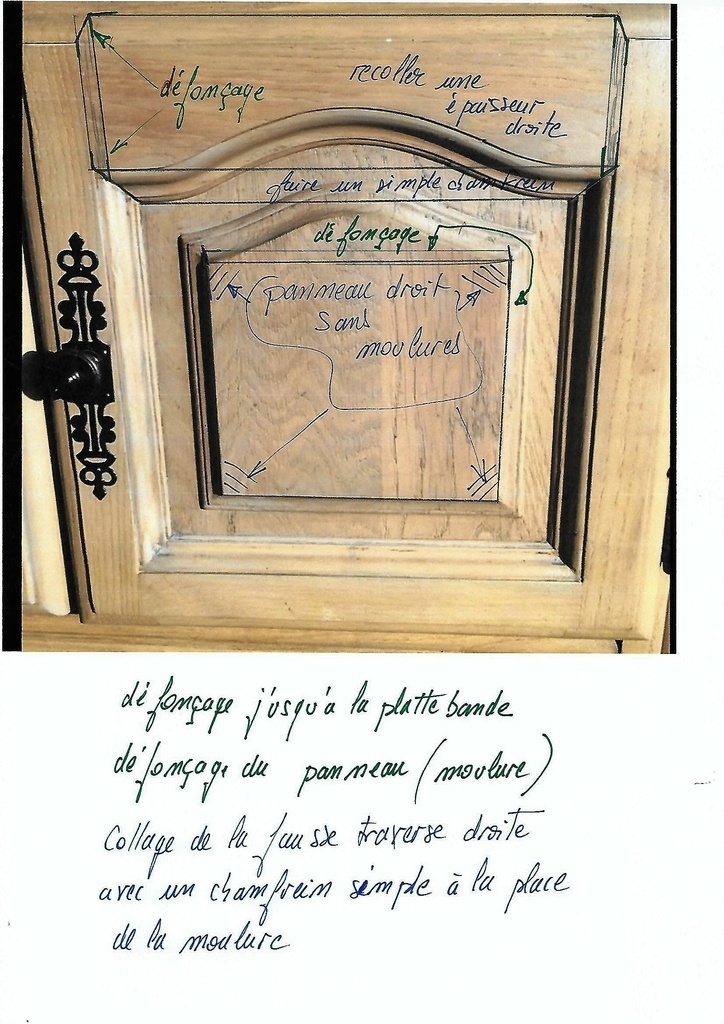 défonçage
recoller une
épaisseur
droite
faire un simple chamfrein
défonçage
panneau droit
sans
moulures
défonçage j'usqu'a la platte bande
défonçage du panneau (moulure)
Collage de la fausse traverse droite
avec un chamfrein simple à la place
de la moulure